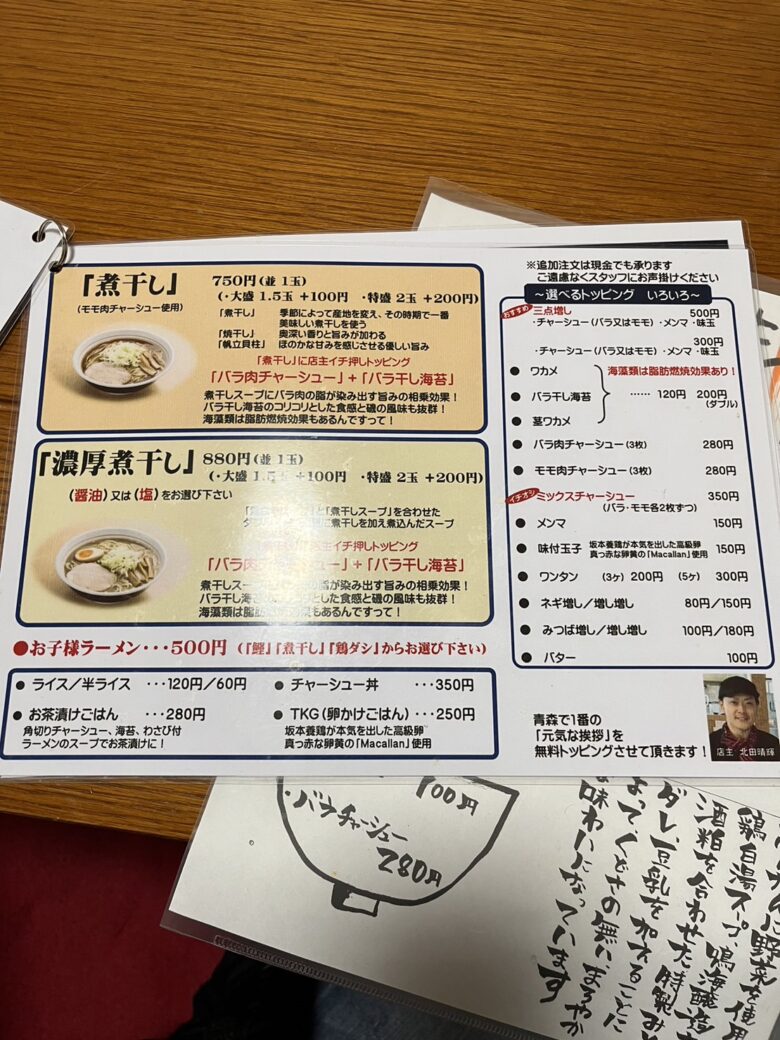 「煮干し」
(モモ肉チャーシュー使用)
750円(並 1玉)
(・大盛 1.5玉 +100円 ・特盛 2玉 +200円)
「煮干し」 季節によって産地を変え、その時期で一番
美味しい煮干しを使う
「焼干し」 奥深い香りと旨みが加わる
「帆立貝柱」 ほのかな甘みを感じさせる優しい旨み
「煮干し」に店主イチ押しトッピング
「バラ肉チャーシュー」+「バラ干し海苔」
煮干しスープにバラ肉の脂が染み出す旨みの相乗効果!
バラ干し海苔のコリコリとした食感と磯の風味も抜群!
海藻類は脂肪燃焼効果もあるんですって!
「濃厚煮干し」
880円(並 1玉)
(・大盛 1.5玉 +100円 ・特盛 2玉 +200円)
(醤油)又は(塩)をお選び下さい
と「煮干しスープ」を合わせた
に煮干しを加え煮込んだスープ
主イチ押しトッピング
「バラ肉チャーシュー」+「バラ干し海苔」
煮干しスープ の脂が染み出す旨みの相乗効果!
バラ干し海苔 とした食感と磯の風味も抜群!
海藻類は脂肪燃焼効果もあるんですって!
●お子様ラーメン・・・500円 (「鰹」「煮干し」「鶏ダシ」からお選び下さい)
● ライス/半ライス ・・・120円/60円
● お茶漬けごはん ・・・280円
角切りチャーシュー、海苔、わさび付
ラーメンのスープでお茶漬けに!
● チャーシュー丼 ・・・350円
● TKG(卵かけごはん)・・・250円
坂本養鶏が本気を出した高級卵
真っ赤な卵黄の「Macallan」使用
※追加注文は現金でも承ります
ご遠慮なくスタッフにお声掛けください
～選べるトッピング いろいろ～
おすすめ 三点増し 500円
・チャーシュー(バラ又はモモ)・メンマ・味玉
300円
・チャーシュー(バラ又はモモ)・メンマ・味玉
● ワカメ 海藻類は脂肪燃焼効果あり!
● バラ干し海苔 ・・・・・・ 120円 200円
(ダブル)
● 茎ワカメ
● バラ肉チャーシュー(3枚) 280円
● モモ肉チャーシュー(3枚) 280円
イチオシ ミックスチャーシュー 350円
(バラ・モモ各2枚ずつ)
● メンマ 150円
● 味付玉子 坂本養鶏が本気を出した高級卵
真っ赤な卵黄の「Macallan」使用 150円
● ワンタン (3ヶ) 200円 (5ヶ) 300円
● ネギ増し/増し増し 80円/150円
● みつば増し/増し増し 100円/180円
● バター 100円
青森で1番の
「元気な挨拶」を
無料トッピングさせて頂きます!
店主 北田晴輝
100円
・バラチャーシュー
280円
に野菜を使用
鶏白湯スープ、鳴海醸造
酒粕を合わせた特製み
ダレ、豆乳を加えることに
よって、くどさの無いまろやか
な味わいになっています